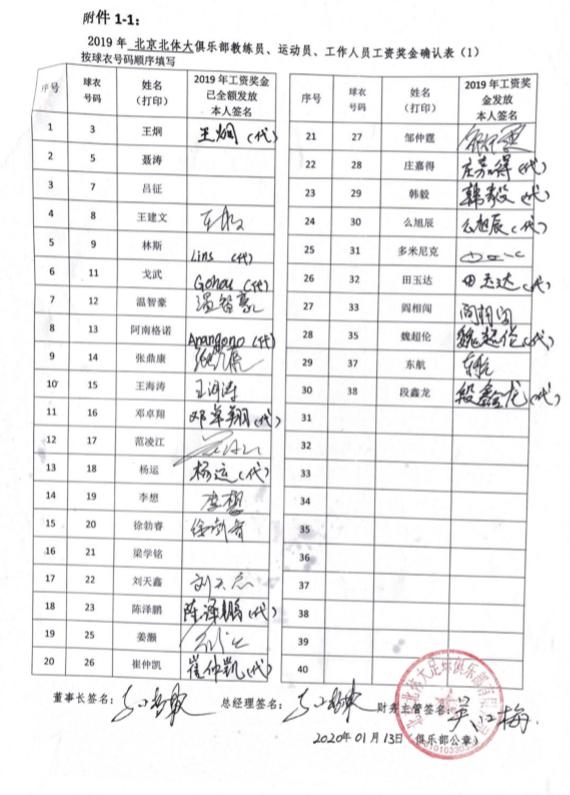 附件 1-1：
2019 年 北京北体大俱乐部教练员、运动员、工作人员工资奖金确认表（1）
按球衣号码顺序填写
序号 球衣号码 姓名（打印） 2019 年工资奖金已全额发放本人签名
1 3 王炯 王炯（代）
2 5 聂涛
3 7 吕征
4 8 王建文
5 9 林斯 Lins（代）
6 11 戈武 Gohou（代）
7 12 温智豪 温智豪
8 13 阿南格诺 Anangono（代）
9 14 张鼎康
10 15 王海涛 王海涛
11 16 邓卓翔 邓卓翔（代）
12 17 范凌江
13 18 杨运 杨运（代）
14 19 李想 李想
15 20 徐勃睿 徐勃睿
16 21 梁学铭
17 22 刘天鑫
18 23 陈泽鹏 陈泽鹏（代）
19 25 姜灏
20 26 崔仲凯 崔仲凯（代）
序号 球衣号码 姓名（打印） 2019 年工资奖金发放本人签名
21 27 邹仲霆
22 28 庄嘉得 庄嘉得（代）
23 29 韩毅 韩毅（代）
24 30 么旭辰 么旭辰（代）
25 31 多米尼克
26 32 田玉达 田玉达（代）
27 33 阎相闯 阎相闯
28 35 魏超伦 魏超伦（代）
29 37 东航 东航
30 38 段鑫龙 段鑫龙（代）
31
32
33
34
35
36
37
38
39
40
董事长签名： 总经理签名： 财务主管签名：吴江梅
2020年01月13日（俱乐部公章）